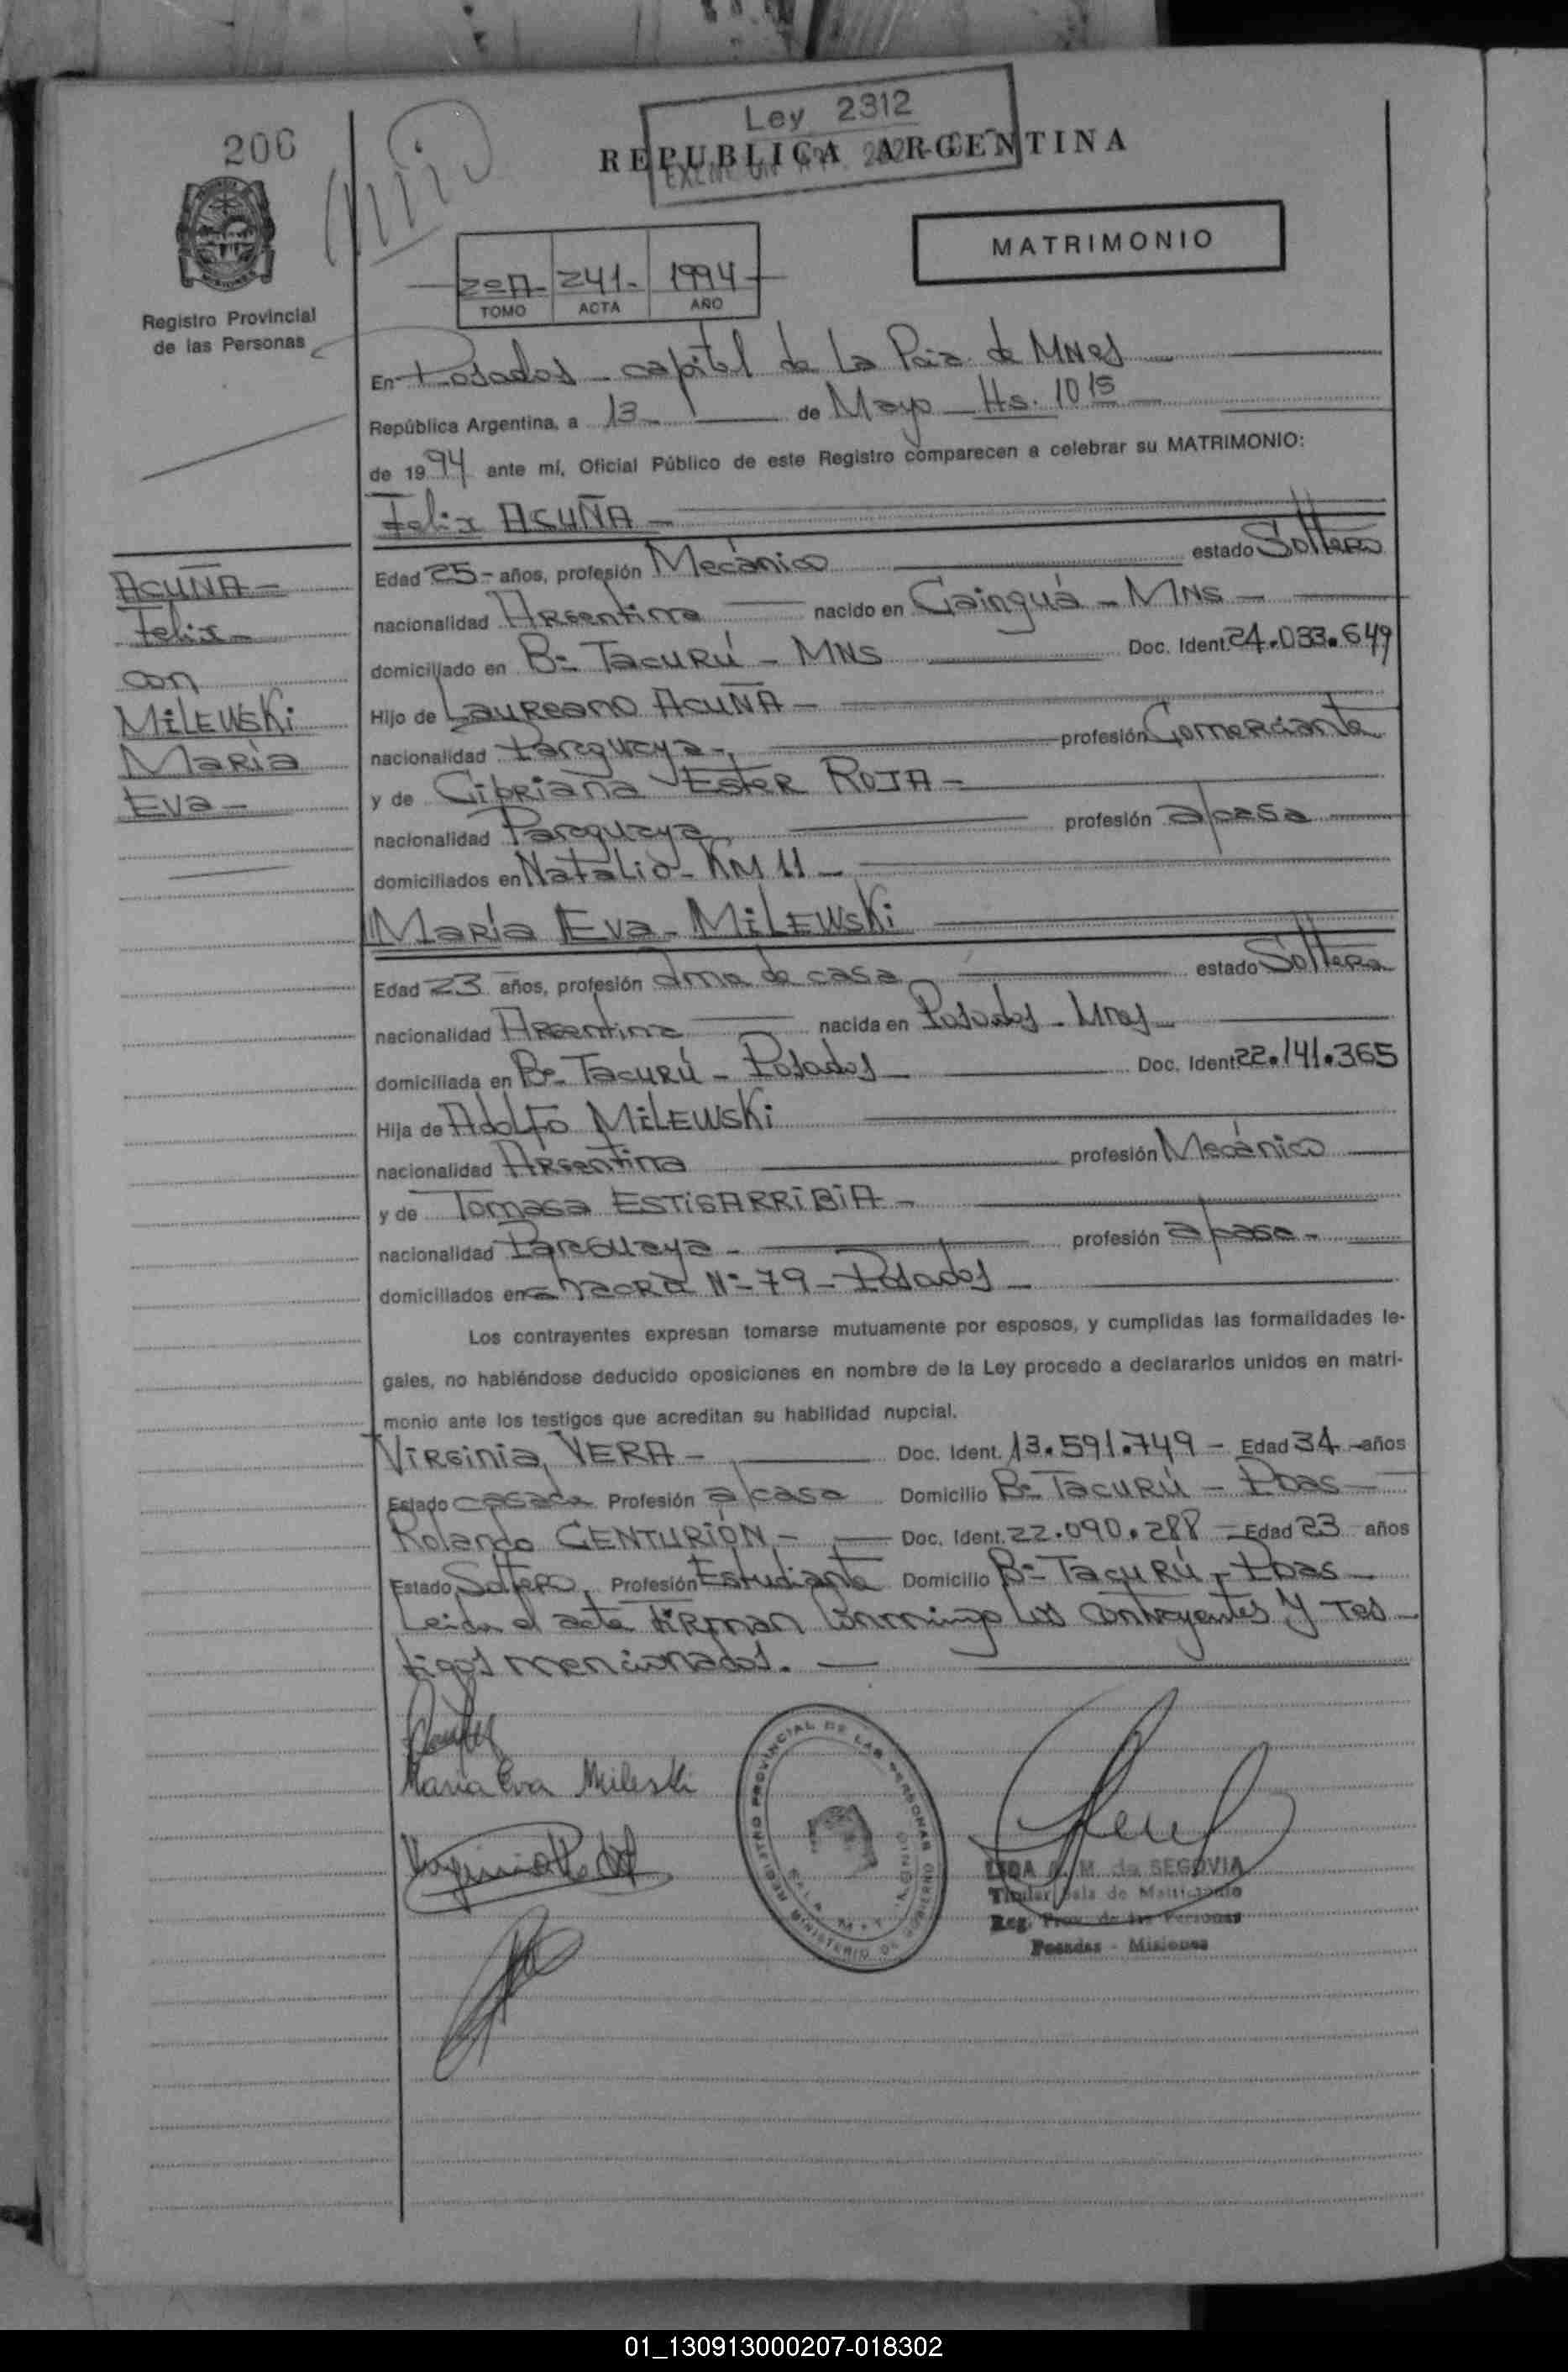 206
Ley 2312
REPUBLICA ARGENTINA
MATRIMONIO
Registro Provincial
de las Personas
2ºA- 241- 1994-
TOMO ACTA AÑO
En Posadas - capital de La Pcia. de MNes
República Argentina, a 13 de Mayo Hs. 10 15
de 1994 ante mí, Oficial Público de este Registro comparecen a celebrar su MATRIMONIO:
Felix ACUÑA -
ACUÑA -
Felix -
con
MILEWSKi
María
Eva -
Edad 25- años, profesión Mecánico estado Soltero
nacionalidad Argentina nacido en Cainguá - MNS -
domiciliado en Bº Tacurú - MNS Doc. Ident. 24.033.649
Hijo de Laureano ACUÑA -
nacionalidad Paraguaya - profesión Comerciante
y de Cipriana Ester ROJA -
nacionalidad Paraguaya profesión a/casa
domiciliados en Natalio - KM 11 -
María Eva - MILEWSKi
Edad 23 años, profesión ama de casa estado Soltera
nacionalidad Argentina nacida en Posadas - Mnes -
domiciliada en Bº Tacurú - Posadas Doc. Ident. 22.141.365
Hija de Adolfo MILEWSKi
nacionalidad Argentina profesión Mecánico
y de Tomasa ESTIGARRIBIA -
nacionalidad Paraguaya - profesión a/casa -
domiciliados en chacra Nº 79 - Posadas -
Los contrayentes expresan tomarse mutuamente por esposos, y cumplidas las formalidades le-
gales, no habiéndose deducido oposiciones en nombre de la Ley procedo a declararlos unidos en matri-
monio ante los testigos que acreditan su habilidad nupcial.
Virginia VERA - Doc. Ident. 13.591.749 - Edad 34 -años
Estado casada Profesión a/casa Domicilio Bº Tacurú - Pdas -
Rolando CENTURIÓN - Doc. Ident. 22.090.288 - Edad 23 años
Estado Soltero, Profesión Estudiante Domicilio Bº Tacurú - Pdas -
Leida el acta firman conmingo los contrayentes y tes-
tigos mencionados. -
Maria Eva Mileski
REGISTRO PROVINCIAL DE LAS PERSONAS
MINISTERIO DE GOBIERNO
A. M. de SEGOVIA
Titular Sala de Matrimonio
Reg. Prov. de las Personas
Posadas - Misiones
01_130913000207-018302